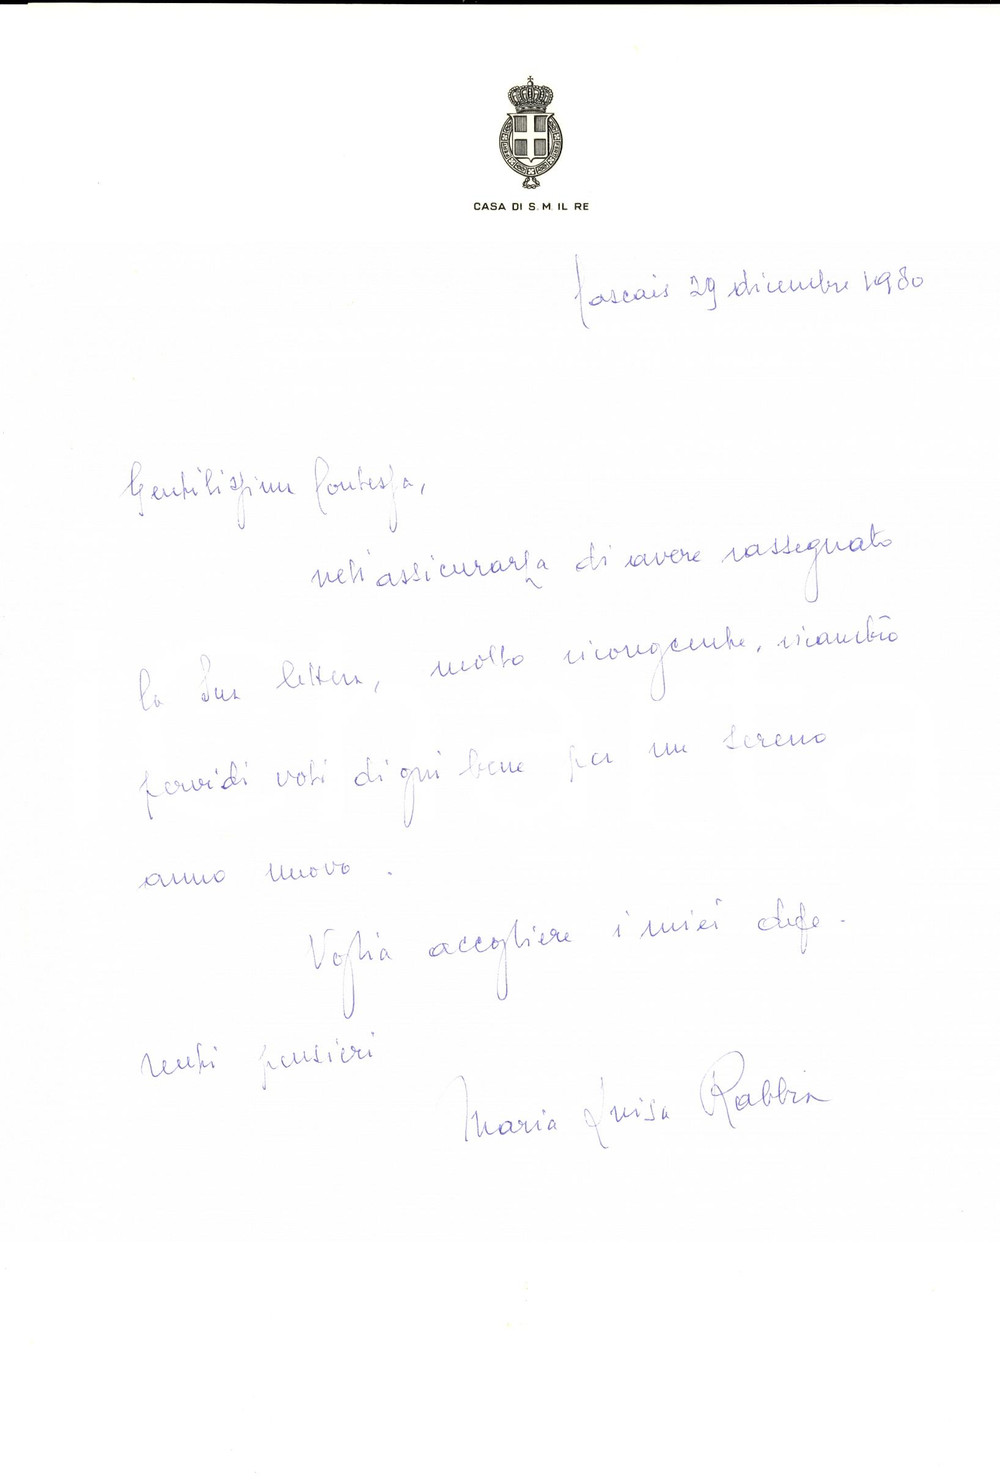 CASA DI S. M. IL RE
Cascais 29 dicembre 1980
Gentilissima Contessa,
nell'assicurarLa di avere rassegnato
la Sua lettera, molto riconoscente, ricambio
fervidi voti di ogni bene per un sereno
anno nuovo.
Voglia accogliere i miei defe-
renti pensieri
Maria Luisa Rabbia